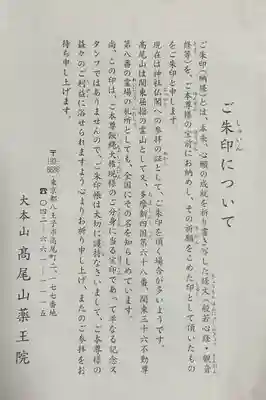 ご朱印について
しゅいん
ご朱印(納経)とは、本来、心願の成就を祈り書き写した経文(般若心経・観音
経等)を、ご本尊様の宝前にお納めし、その祈願をこめた印として頂いたもの
をご朱印と申します。
現在は神社仏閣への参拝の証として、ご朱印を頂く場合が多いようです。
高尾山は関東屈指の霊山として又、多摩新四国第六十八番、関東三十六不動尊
第八番の霊場の札所としても、全国にその名を知らしめています。
尚、この印は、ご本尊飯縄大権現様のご分身に当る宝印であって単なる記念ス
タンプではありませんので、ご朱印帳は大切に護持なさいまして、ご本尊様の
益々のご利益に浴せられますよう心よりお祈り申し上げ、またのご参拝をお
待ち申し上げます。
〒193-8686 東京都八王子市高尾町二一七七番地
☎〇四二-六六一-一一一五
大本山 髙尾山薬王院